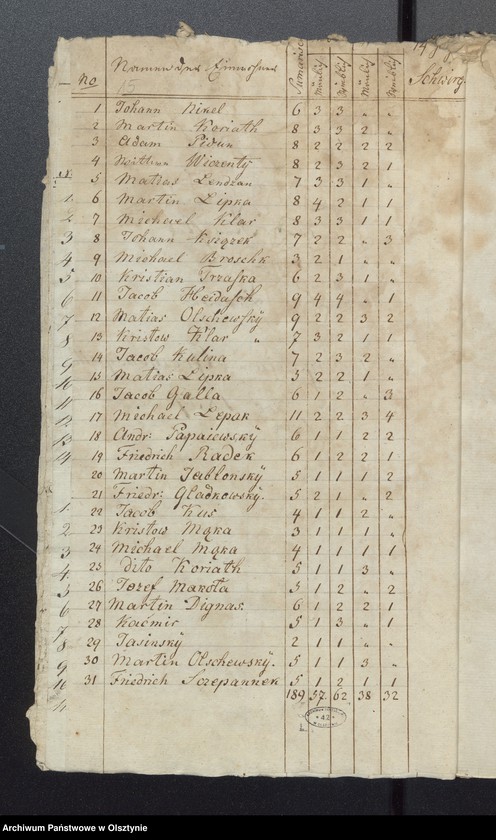 No Namen der Einwohner Sumarisch Mänlich Weiblich Mänlich Weiblich Schwerg.
1 Johann Nikel 6 3 3 „ „
2 Martin Koriath 8 3 3 2 „
3 Adam Pidun 8 2 2 2 2
4 Wiczenty 8 2 3 2 1
5 Matias Lendzan 7 3 3 1 „
6 Martin Lipka 8 4 2 1 1
7 Michael Klar 8 3 3 1 1
8 Johann Księzek 7 2 2 „ 3
9 Michael Broschk 3 2 1 „ „
10 Kristian Trzaska 6 2 3 1 „
11 Jacob Heidasch 9 4 4 „ 1
12 Matias Olschewsky 9 2 2 3 2
13 Kristow Klar „ 7 3 2 1 1
14 Jacob Kulina 7 2 3 2 „
15 Matias Lipka 5 2 2 1 „
16 Jacob Galla 6 1 2 „ 3
17 Michael Lepak 11 2 2 3 4
18 Andr: Papaiewsky 6 1 1 2 2
19 Friedrich Radek 6 1 2 2 1
20 Martin Jablonsky 5 1 1 1 2
21 Friedr: Gladkowsky. 5 2 1 „ 2
22 Jacob Kus 4 1 1 2 „
23 Kristow Mąka 3 1 1 1 „
24 Michael Mąka 4 1 1 1 1
25 dito Koriath 5 1 1 3 „
26 Jozef Makoła 5 1 2 „ 2
27 Martin Dignas 6 1 2 2 1
28 Kaźmir 5 1 3 „ 1
29 Jasinsky 2 1 1 „ „
30 Martin Olschewsky. 5 1 1 3 „
31 Friedrich Sczepannek 5 1 2 1 1
189 57 62 38 32
42
Archiwum Państwowe w Olsztynie